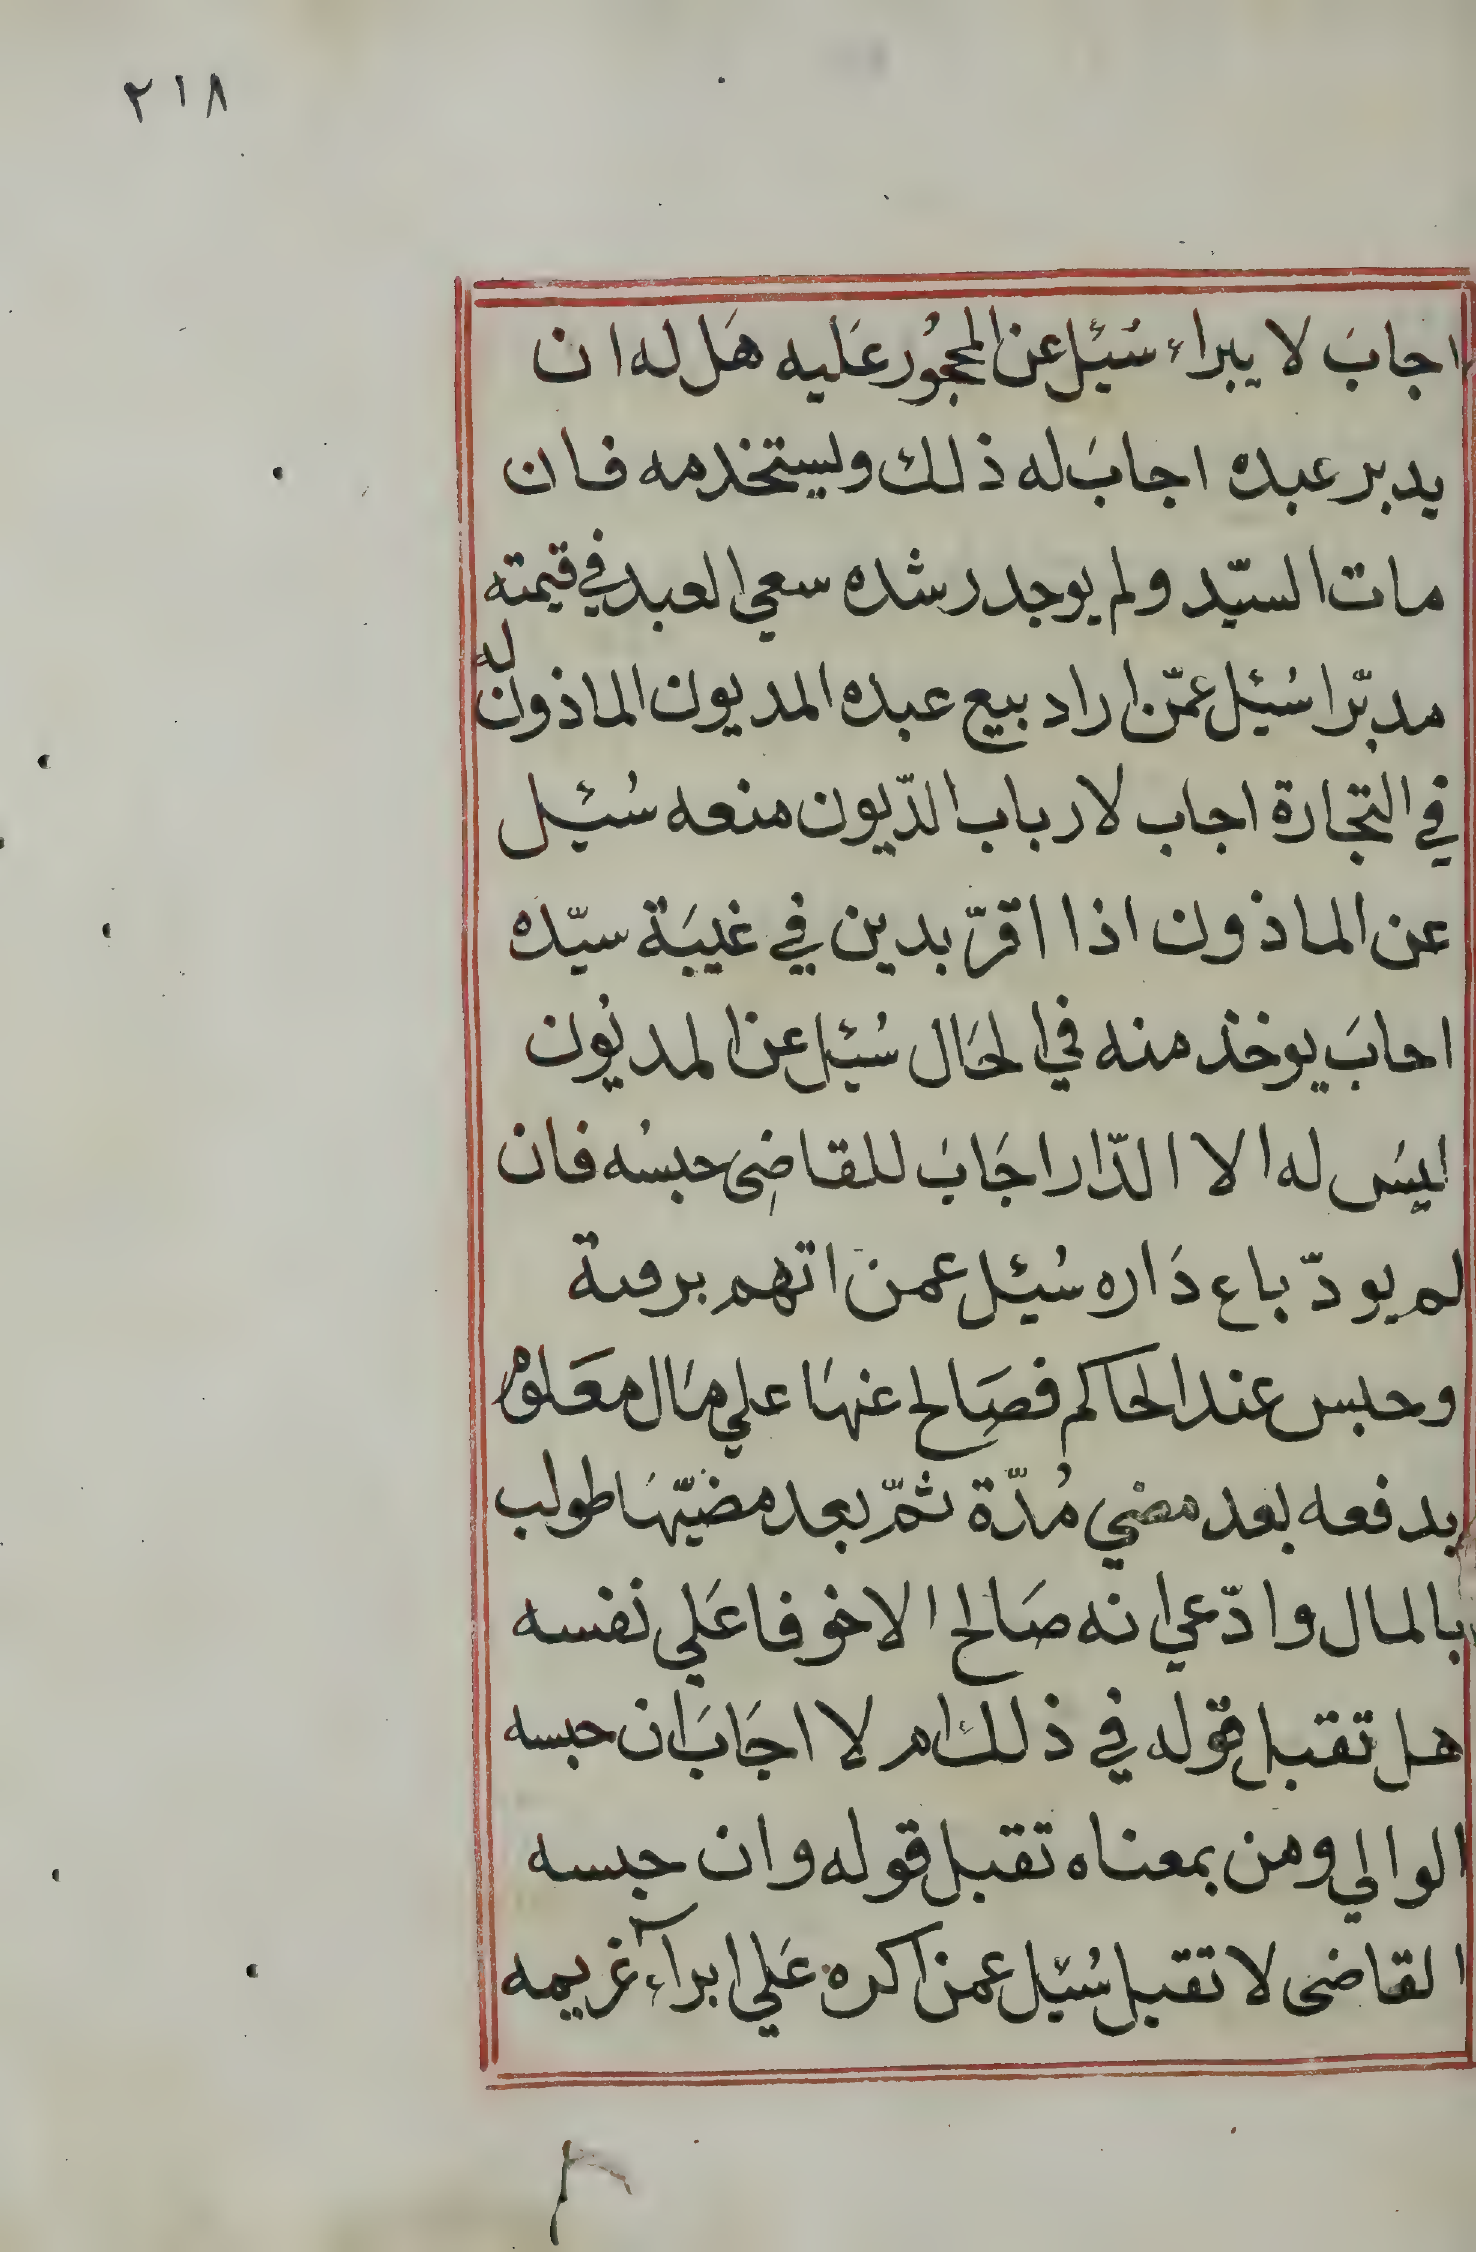 ٢١٨
اجابَ لا يبراء سُئيل عن المحجُور عَليه هَل له ان
يدبر عبده اجابَ له ذلك ويستخدمه فان
مات السيّد ولم يوجد رشده سعي العبد في قيمته
مدبّرا سُئيل عمّن اراد بيع عبده المديون الماذون له
في التجارة اجاب لارباب الدّيون منعه سُئيل
عن الماذون اذا اقرّ بدين في غيبَة سيّده
احابَ يوخذ منه في الحَال سُئيل عن المديُون
ليسَ له الا الدّار اجَابَ للقاضِى حبسُه فان
لم يودّ باع دَاره سُئيل عمن اتهم برقىة
وحبس عند الحاكم فصَالح عنهَا علي مَال معَلوم
بدفعه بعد مضي مُدّة ثمّ بعد مضيّهَا طولب
بالمال وادّعي انه صَالح الاخوفا عَلي نفسه
هل تقبل قوله في ذلك ام لا اجَابَ ان حبسه
الوالي ومن بمعناه تقبل قوله وان حبسه
القاضى لا تقبل سُئيل عمن اكره عَلي ابراَء غريمه